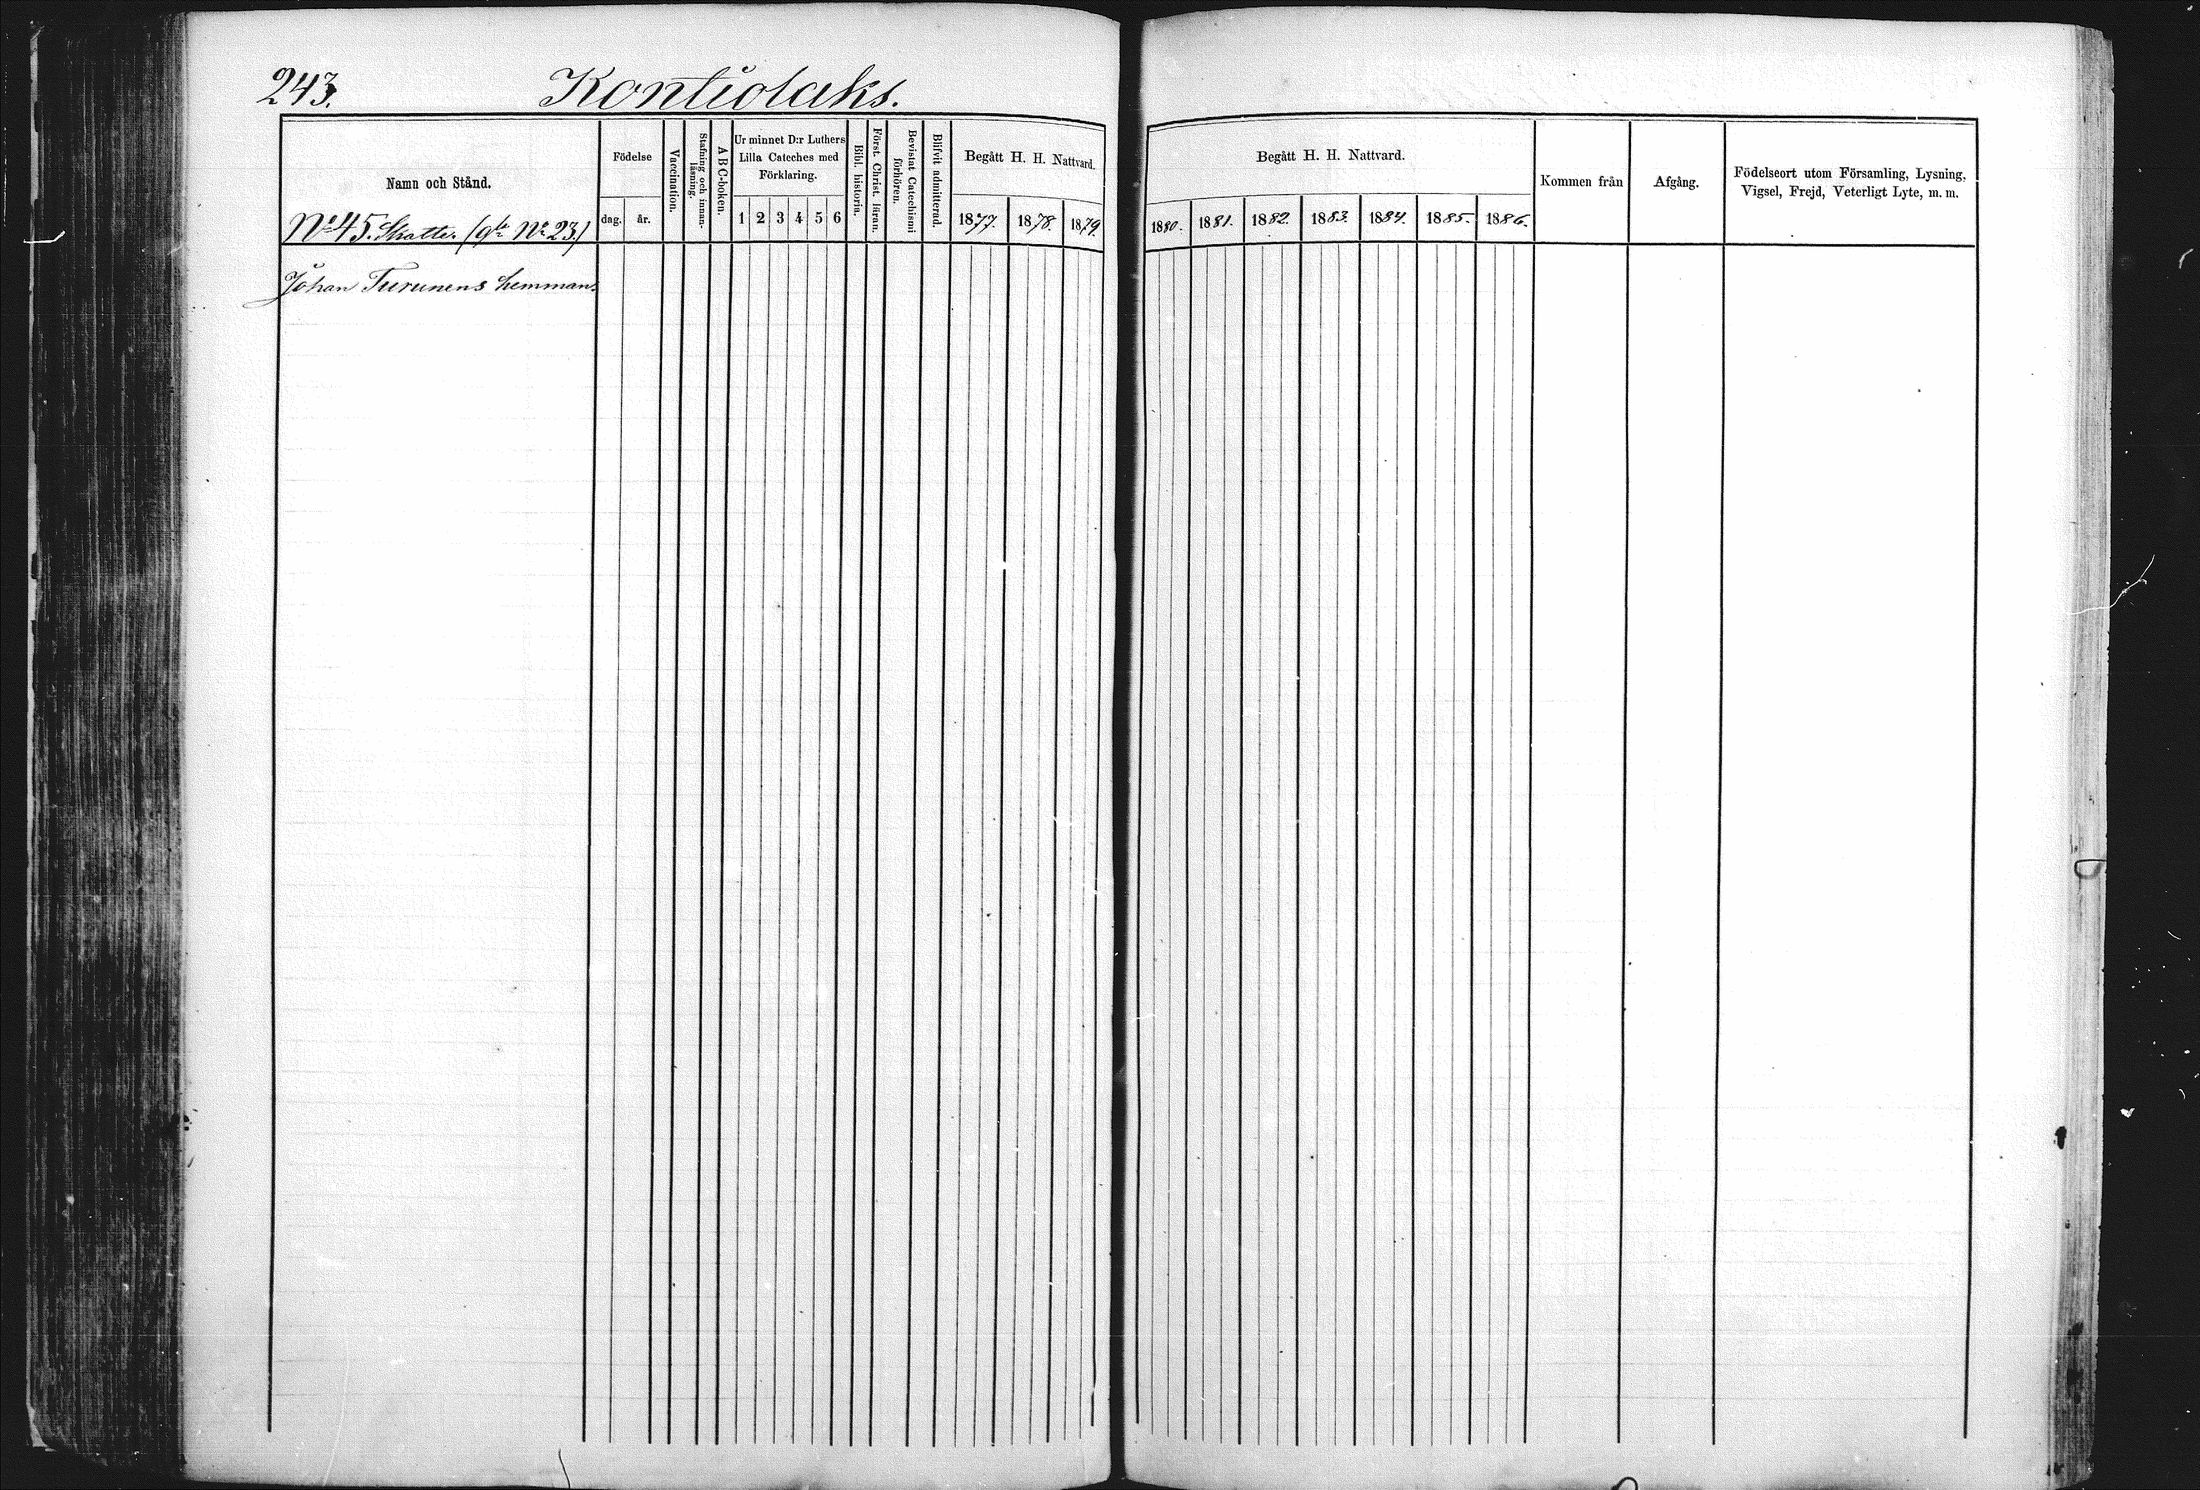 243.
Kontiolaks.
Namn och Stånd.
No 45. Skatte. (gla No 23.)
Födelse
dag. år.
Vaccination.
Stafning och innan-
läsning.
A B C-boken.
Ur minnet D:r Luthers
Lilla Cateches med
Förklaring.
1 2 3 4 5 6
Bibl. historia.
Först. Christ. läran.
Bevistat Catechismi
förhören.
Blifvit admitterad.
Begått H. H. Nattvard.
1877. 1878. 1879.
Johan Turunens hemman.
Begått H. H. Nattvard.
1880. 1881. 1882. 1883. 1884. 1885. 1886.
Kommen från
Afgång.
Födelseort utom Församling, Lysning,
Vigsel, Frejd, Veterligt Lyte, m. m.